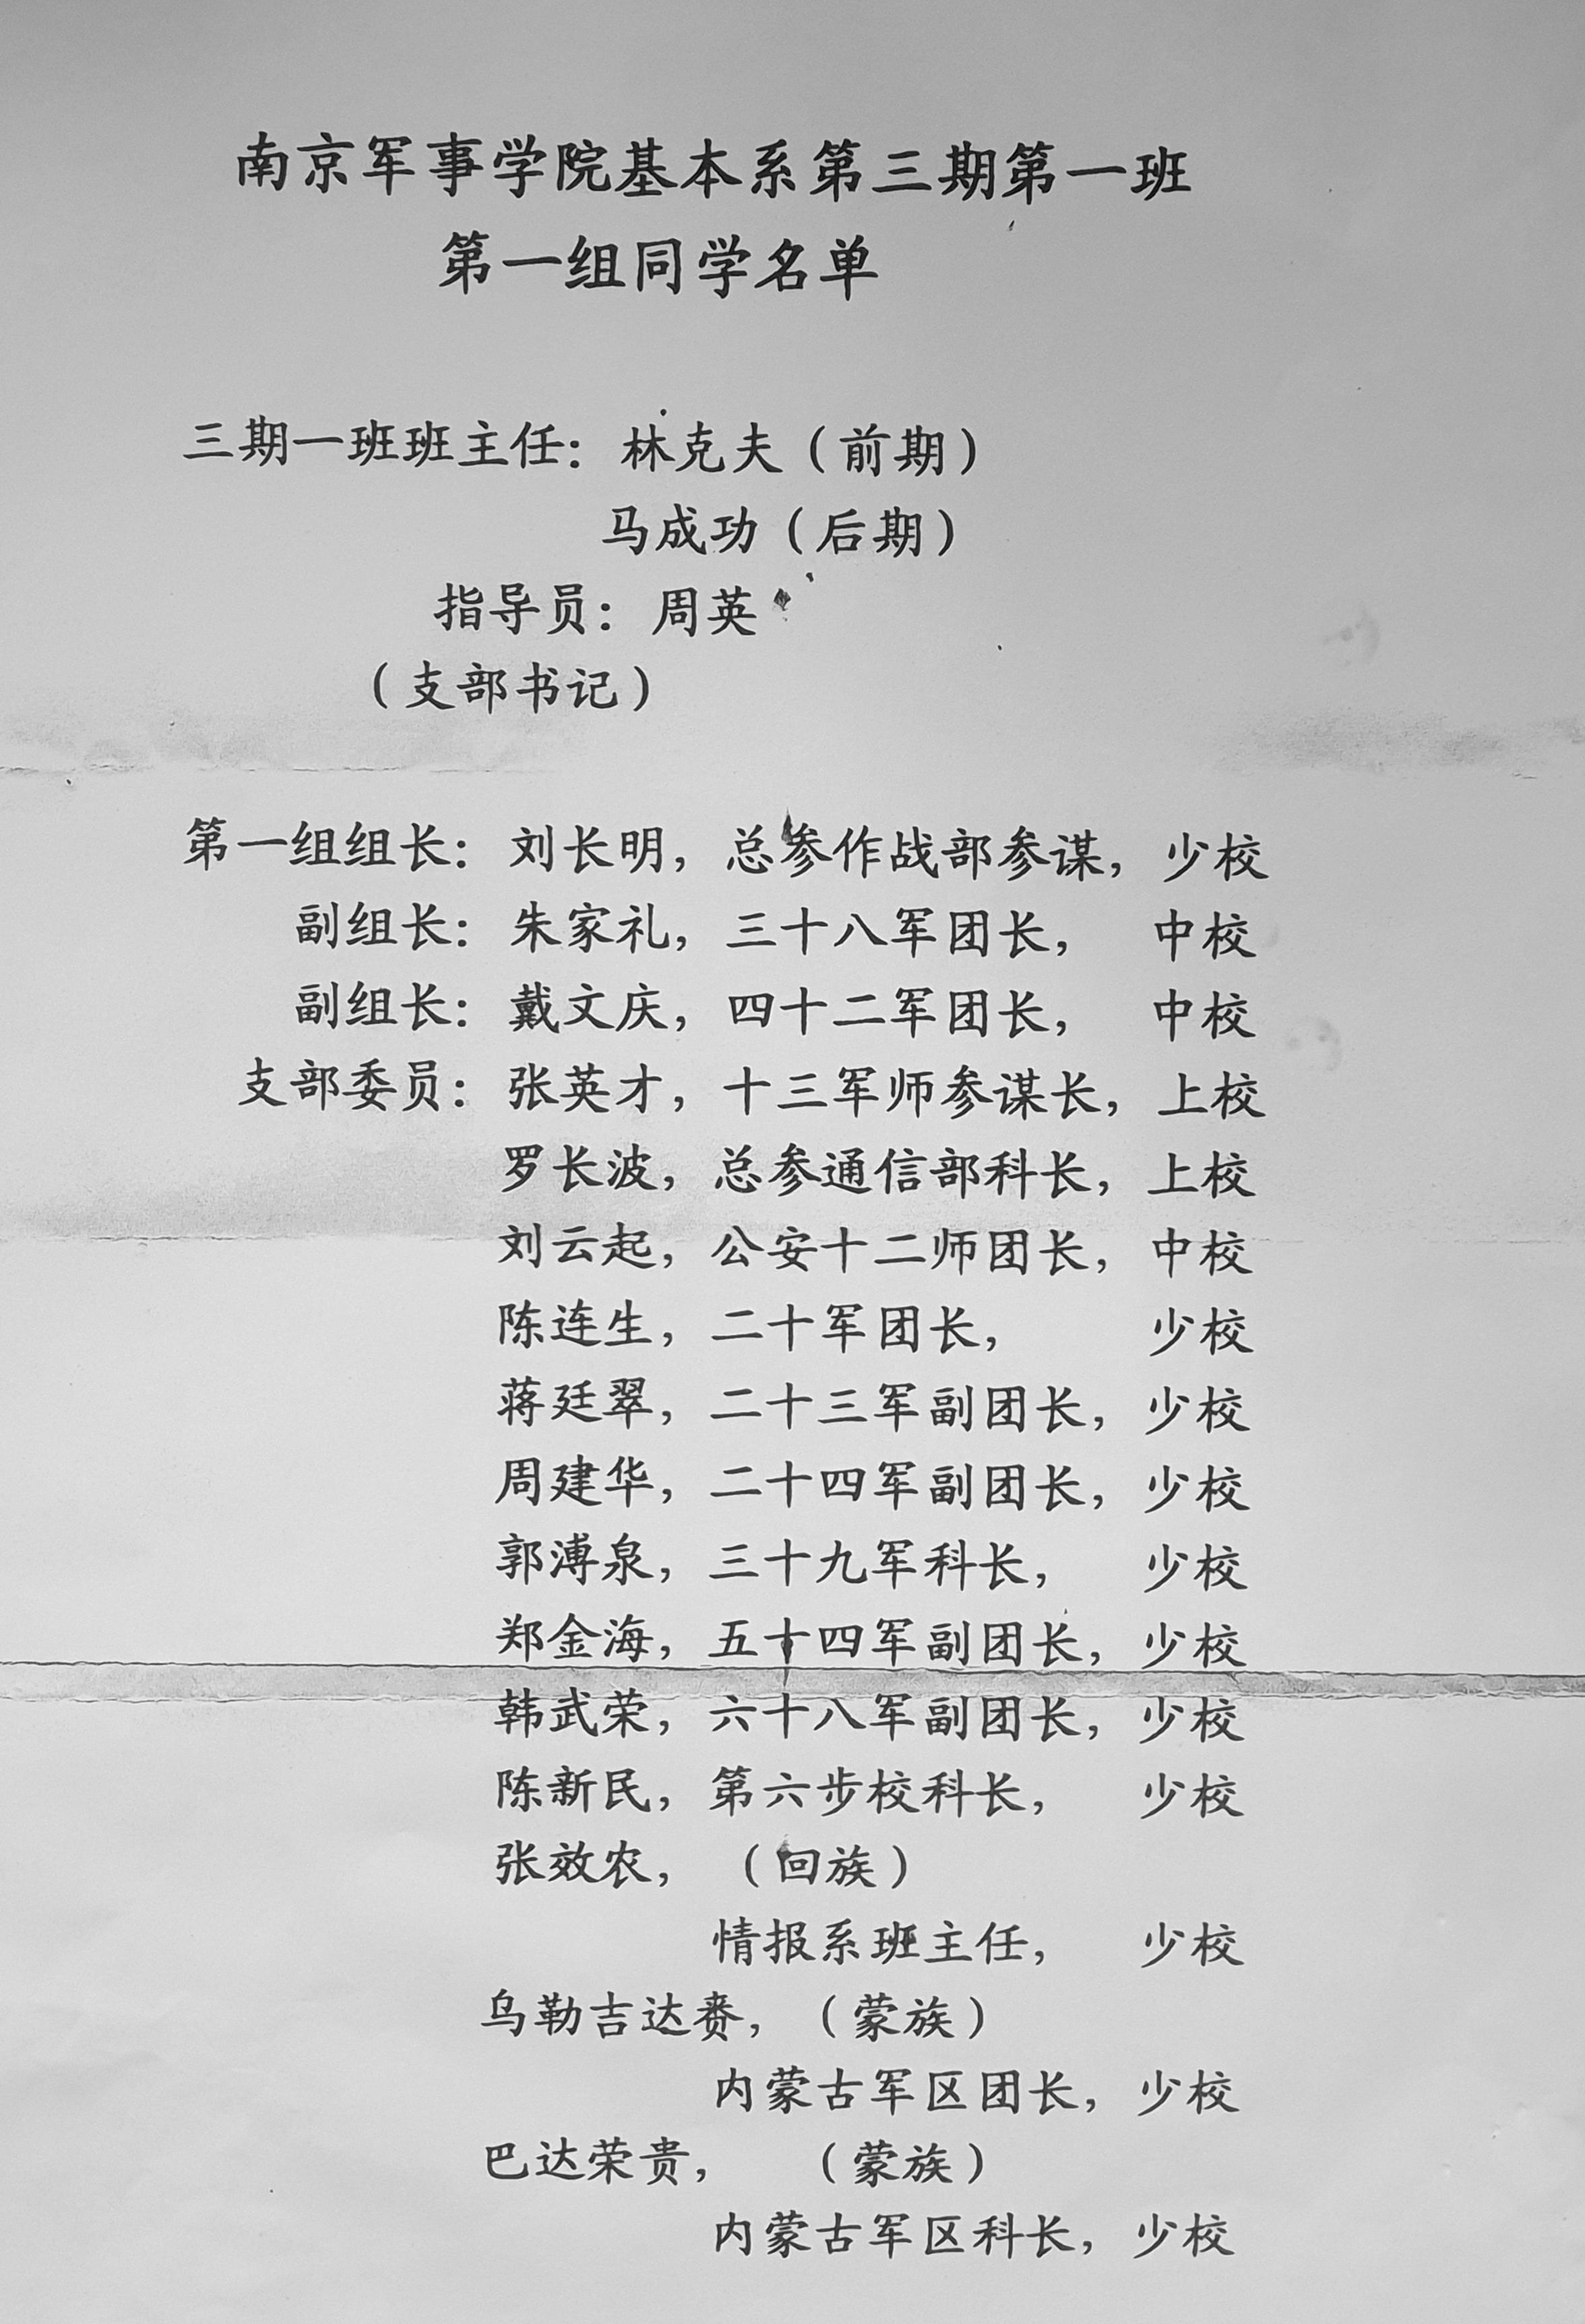 南京军事学院基本系第三期第一班
第一组同学名单
三期一班班主任：林克夫（前期）
马成功（后期）
指导员：周英
（支部书记）
第一组组长：刘长明，总参作战部参谋，少校
副组长：朱家礼，三十八军团长，中校
副组长：戴文庆，四十二军团长，中校
支部委员：张英才，十三军师参谋长，上校
罗长波，总参通信部科长，上校
刘云起，公安十二师团长，中校
陈连生，二十军团长，少校
蒋廷翠，二十三军副团长，少校
周建华，二十四军副团长，少校
郭溥泉，三十九军科长，少校
郑金海，五十四军副团长，少校
韩武荣，六十八军副团长，少校
陈新民，第六步校科长，少校
张效农，（回族）
情报系班主任，少校
乌勒吉达赉，（蒙族）
内蒙古军区团长，少校
巴达荣贵，（蒙族）
内蒙古军区科长，少校